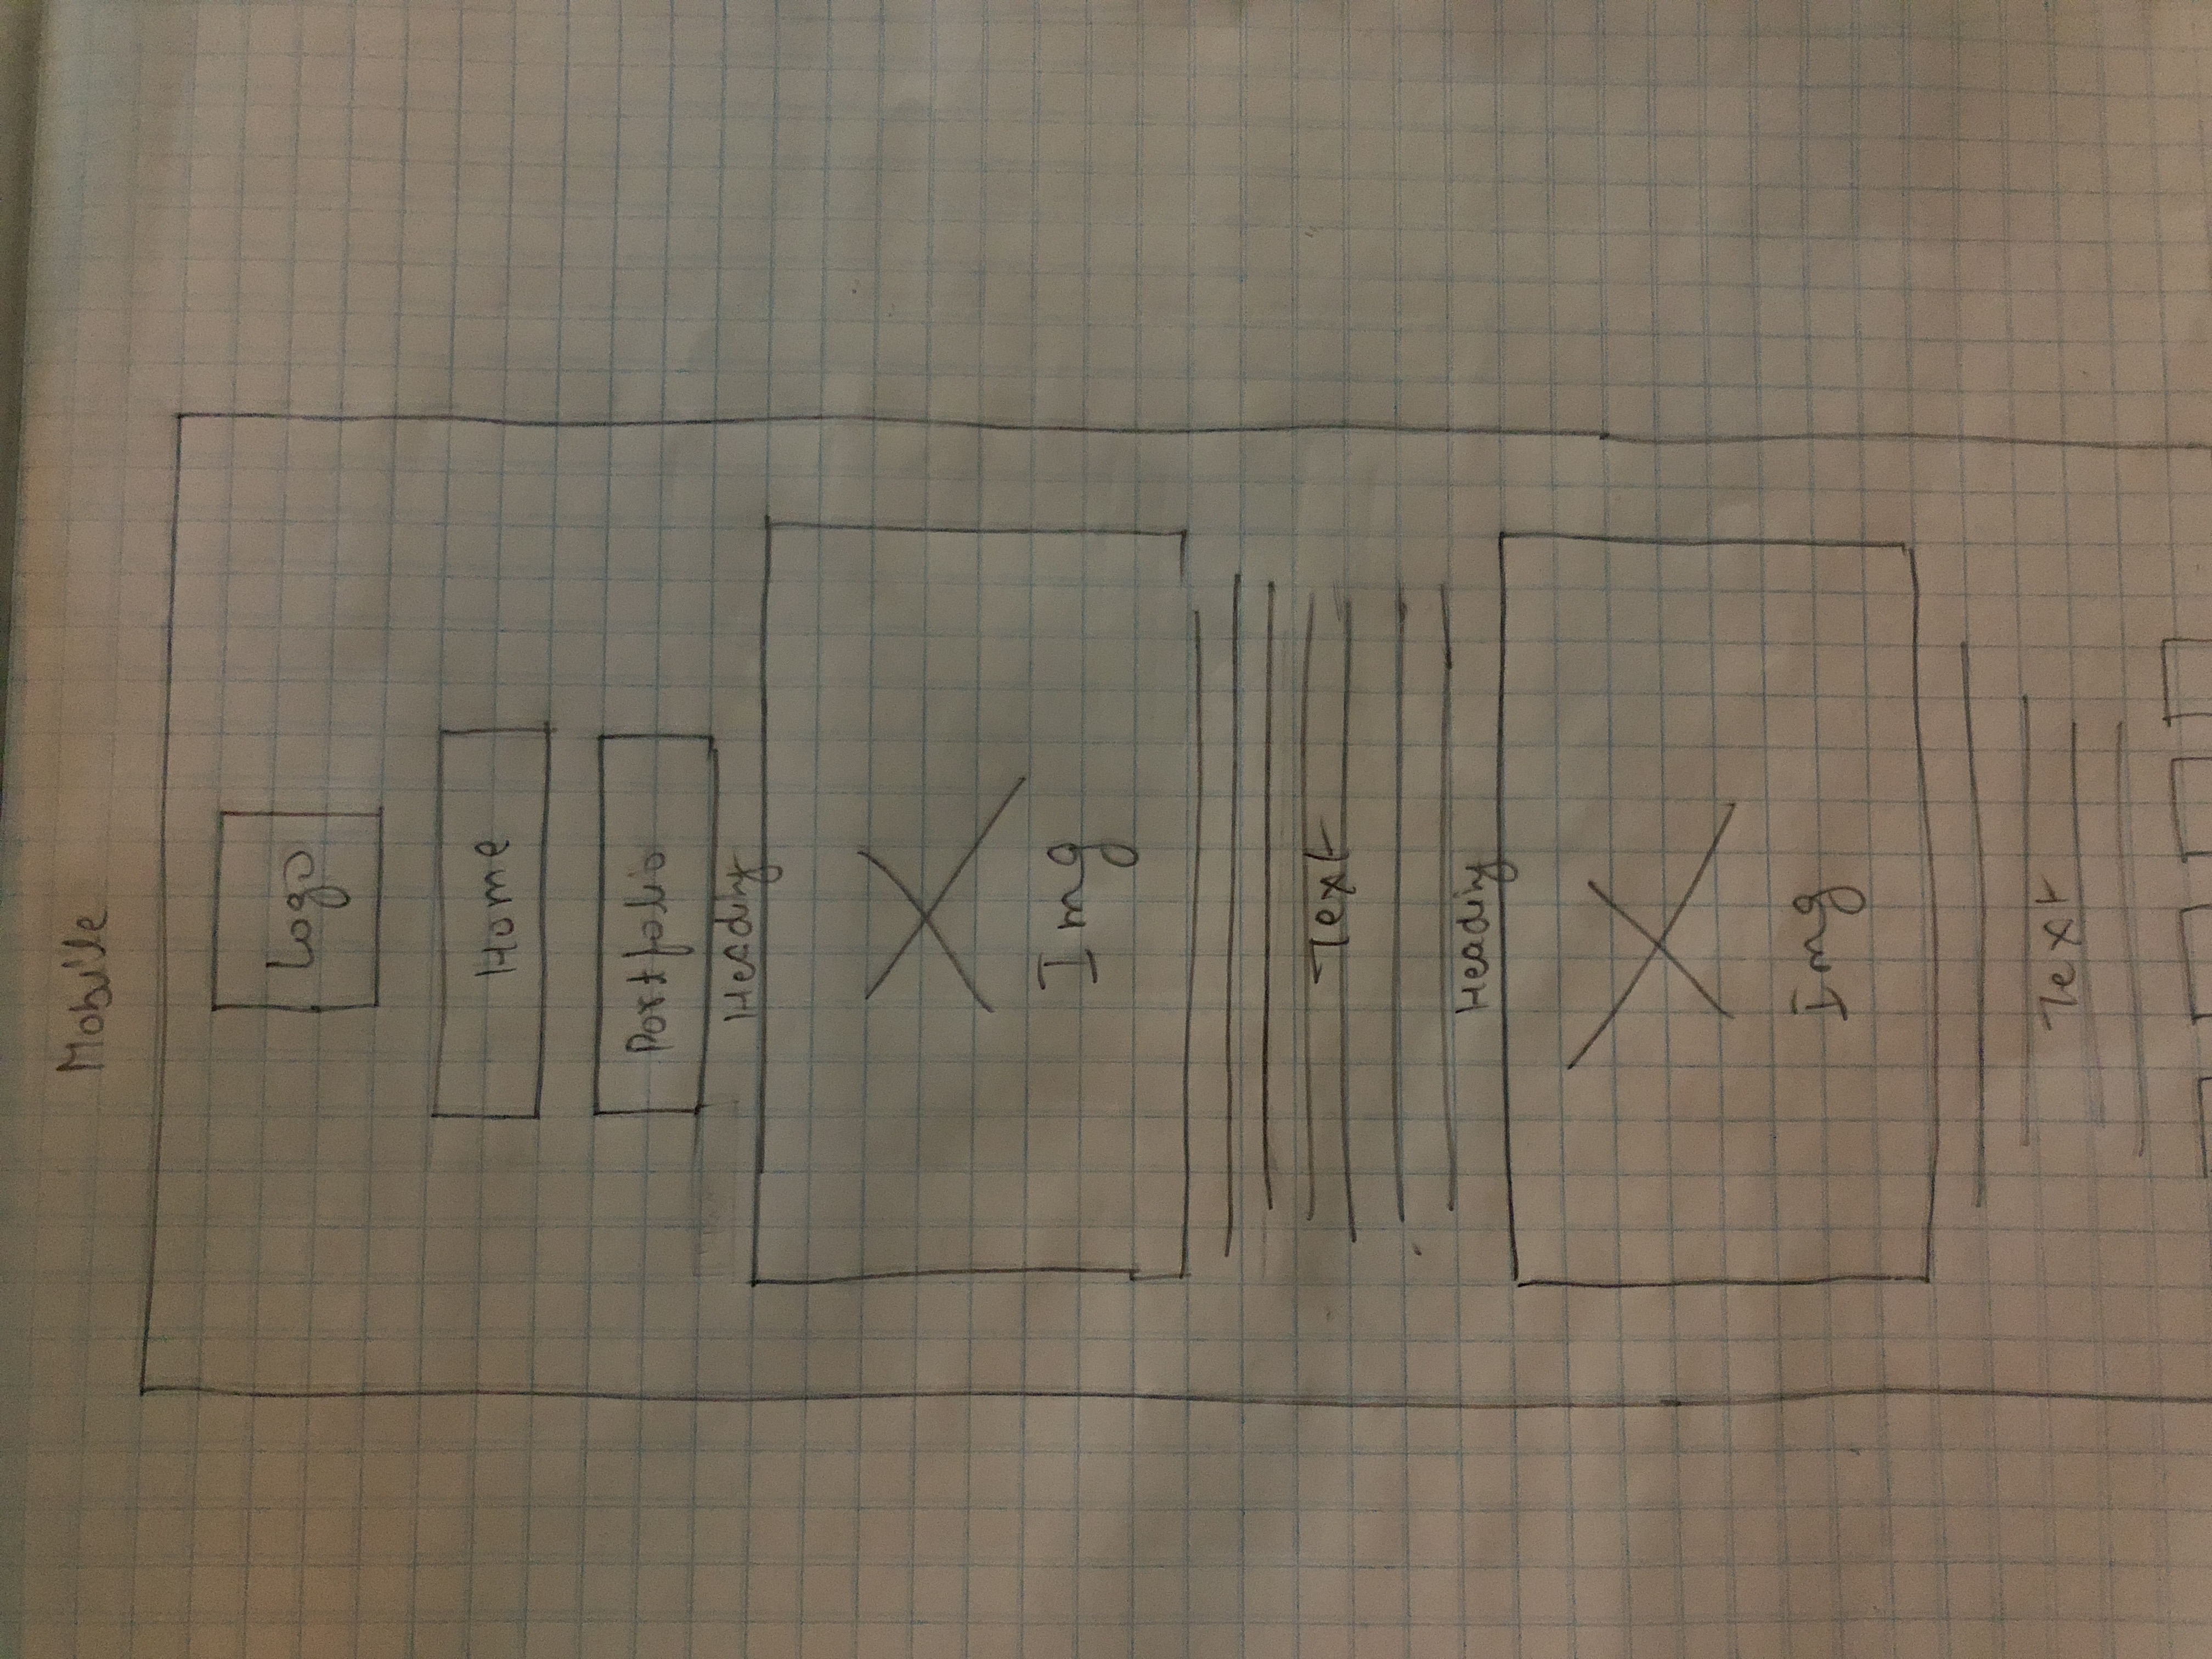 Mobile
Logo
Home
Portfolio
Heading
Img
Text
Heading
Img
Text